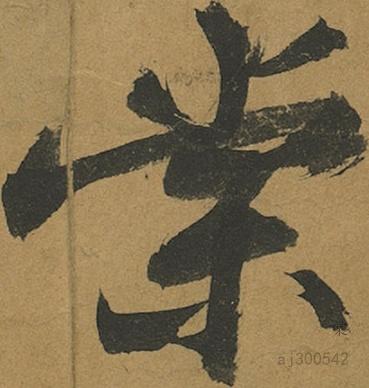 崇
aj300542